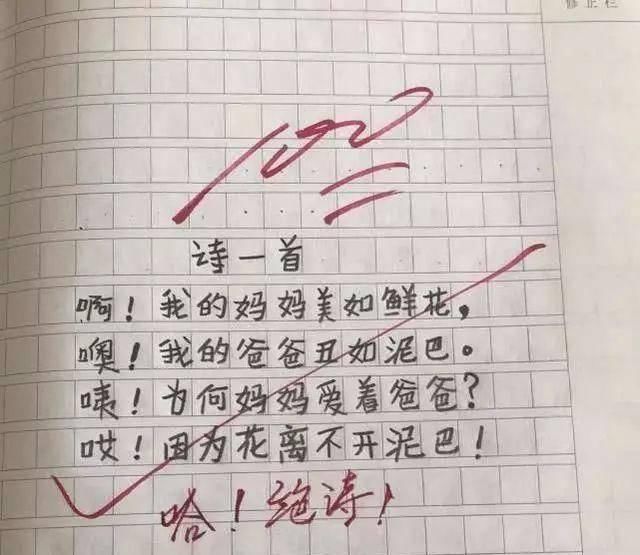 修正栏
100
诗一首
啊！我的妈妈美如鲜花，
噢！我的爸爸丑如泥巴。
咦！为何妈妈爱着爸爸？
哎！因为花离不开泥巴！
哈！绝诗！